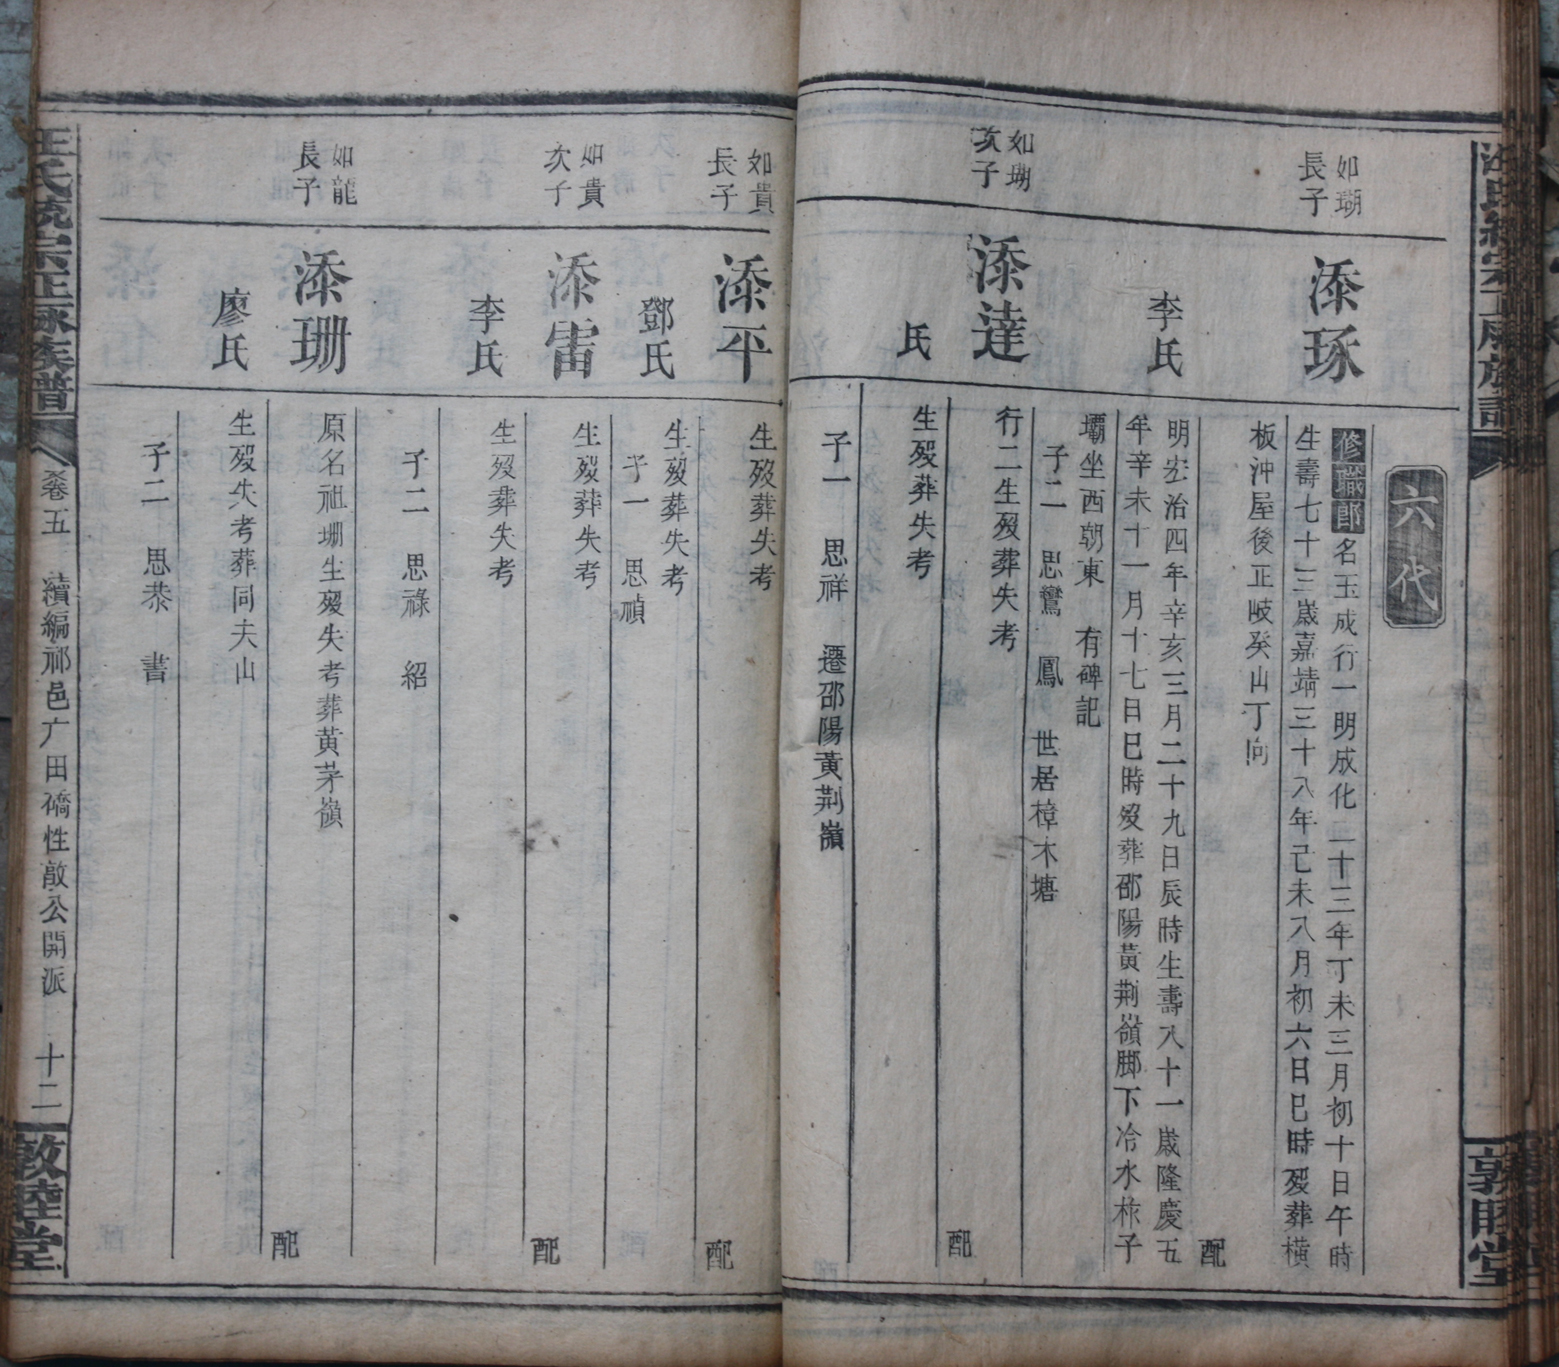 六代
如瑚
長子
添琢
修職郎名玉成行一明成化二十三年丁未三月初十日午時
生壽七十三歲嘉靖三十八年己未八月初六日巳時歿葬橫
板沖屋後正岐癸山丁向
配
李氏
明宏治四年辛亥三月二十九日辰時生壽八十一歲隆慶五
年辛未十一月十七日巳時歿葬邵陽黃荊嶺脚下冷水株子
壩坐西朝東 有碑記
子二 思鸞 鳳 世居樟木塘
如瑚
次子
添達
行二生歿葬失考
配
氏
生歿葬失考
子一 思祥 遷邵陽黃荊嶺
如貴
長子
添平
生歿葬失考
配
鄧氏
生歿葬失考
子一 思禎
如貴
次子
添雷
生歿葬失考
配
李氏
生歿葬失考
子二 思祿 紹
如龍
長子
添珊
原名祖珊生歿失考葬黃茅嶺
配
廖氏
生歿失考葬同夫山
子二 思恭 書
汪氏統宗正脉族譜
卷五 續編祁邑广田礄性敵公開派 十二
敦睦堂